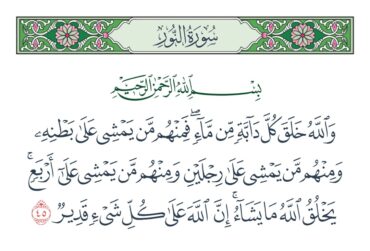 سُورَةُ النُّورِ
بِسْمِ اللَّهِ الرَّحْمَٰنِ الرَّحِيمِ
وَاللَّهُ خَلَقَ كُلَّ دَابَّةٍ مِّن مَّاءٍ ۖ فَمِنْهُم مَّن يَمْشِي عَلَىٰ بَطْنِهِ
وَمِنْهُم مَّن يَمْشِي عَلَىٰ رِجْلَيْنِ وَمِنْهُم مَّن يَمْشِي عَلَىٰ أَرْبَعٍ ۚ
يَخْلُقُ اللَّهُ مَا يَشَاءُ ۚ إِنَّ اللَّهَ عَلَىٰ كُلِّ شَيْءٍ قَدِيرٌ ٤٥